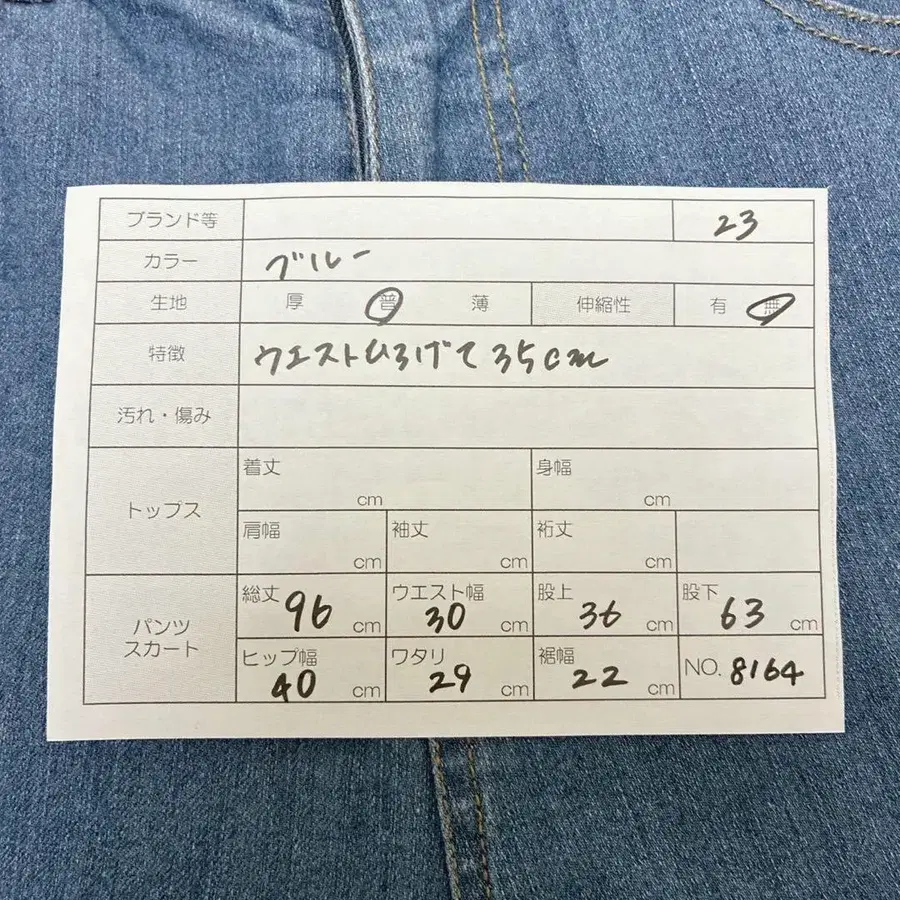 ブランド等 23
カラー ブルー
生地 厚 普 薄 伸縮性 有 無
特徴 ウエストひろげて35cm
汚れ・傷み
トップス
着丈 cm 身幅 cm
肩幅 cm 袖丈 cm 裄丈 cm
パンツ
スカート
総丈 96 cm ウエスト幅 30 cm 股上 36 cm 股下 63 cm
ヒップ幅 40 cm ワタリ 29 cm 裾幅 22 cm NO. 8164